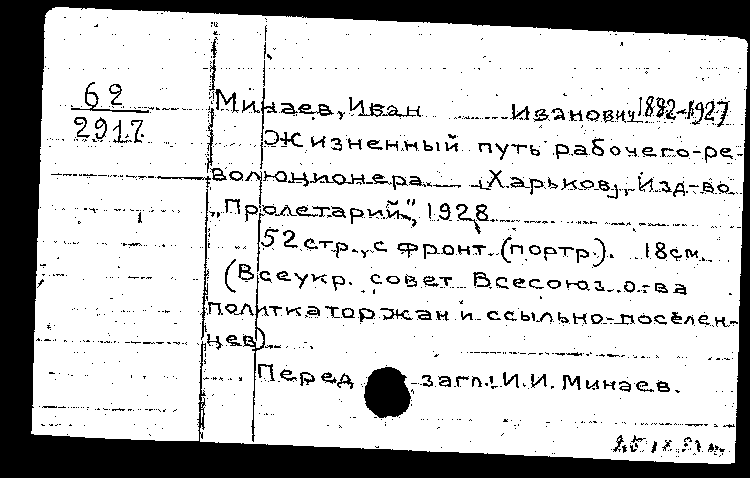 62
2917
Минаев, Иван Иванович 1882-1927
Жизненный путь рабочего-ре-
волюционера. [Харьков], Изд-во
„Пролетарий", 1928.
52 стр., с фронт. (портр.). 18см.
(Всеукр. совет Всесоюз. о-ва
политкаторжан и ссыльно-поселен-
цев)
Перед загл.: И.И. Минаев.